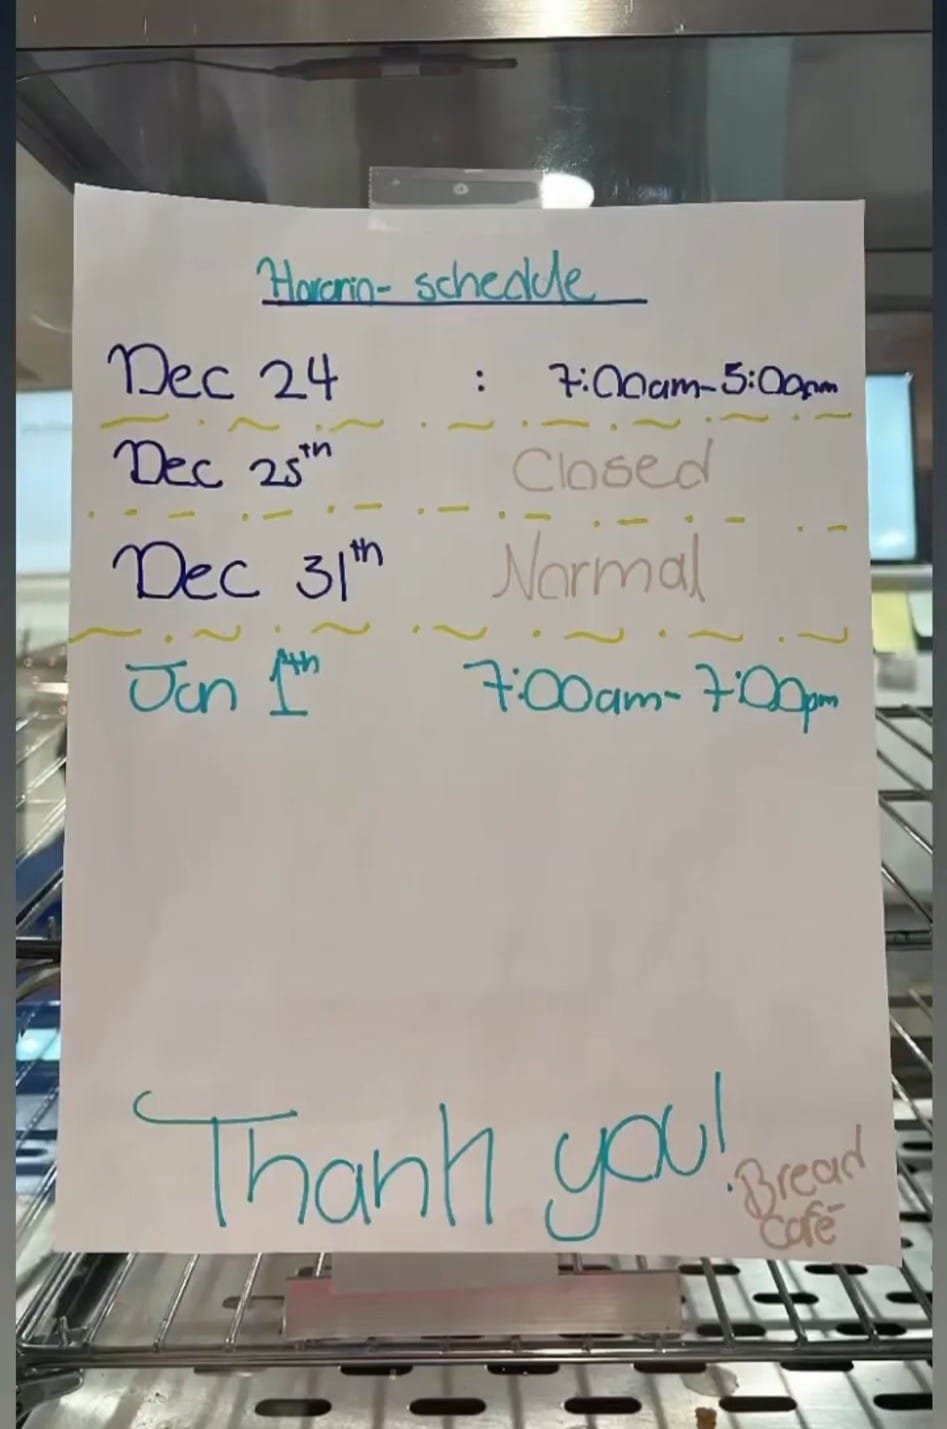 Horario- schedule
Dec 24 : 7:00am-5:00pm
Dec 25th Closed
Dec 31th Normal
Jan 1th 7:00am- 7:00pm
Thank you!
Bread
Café